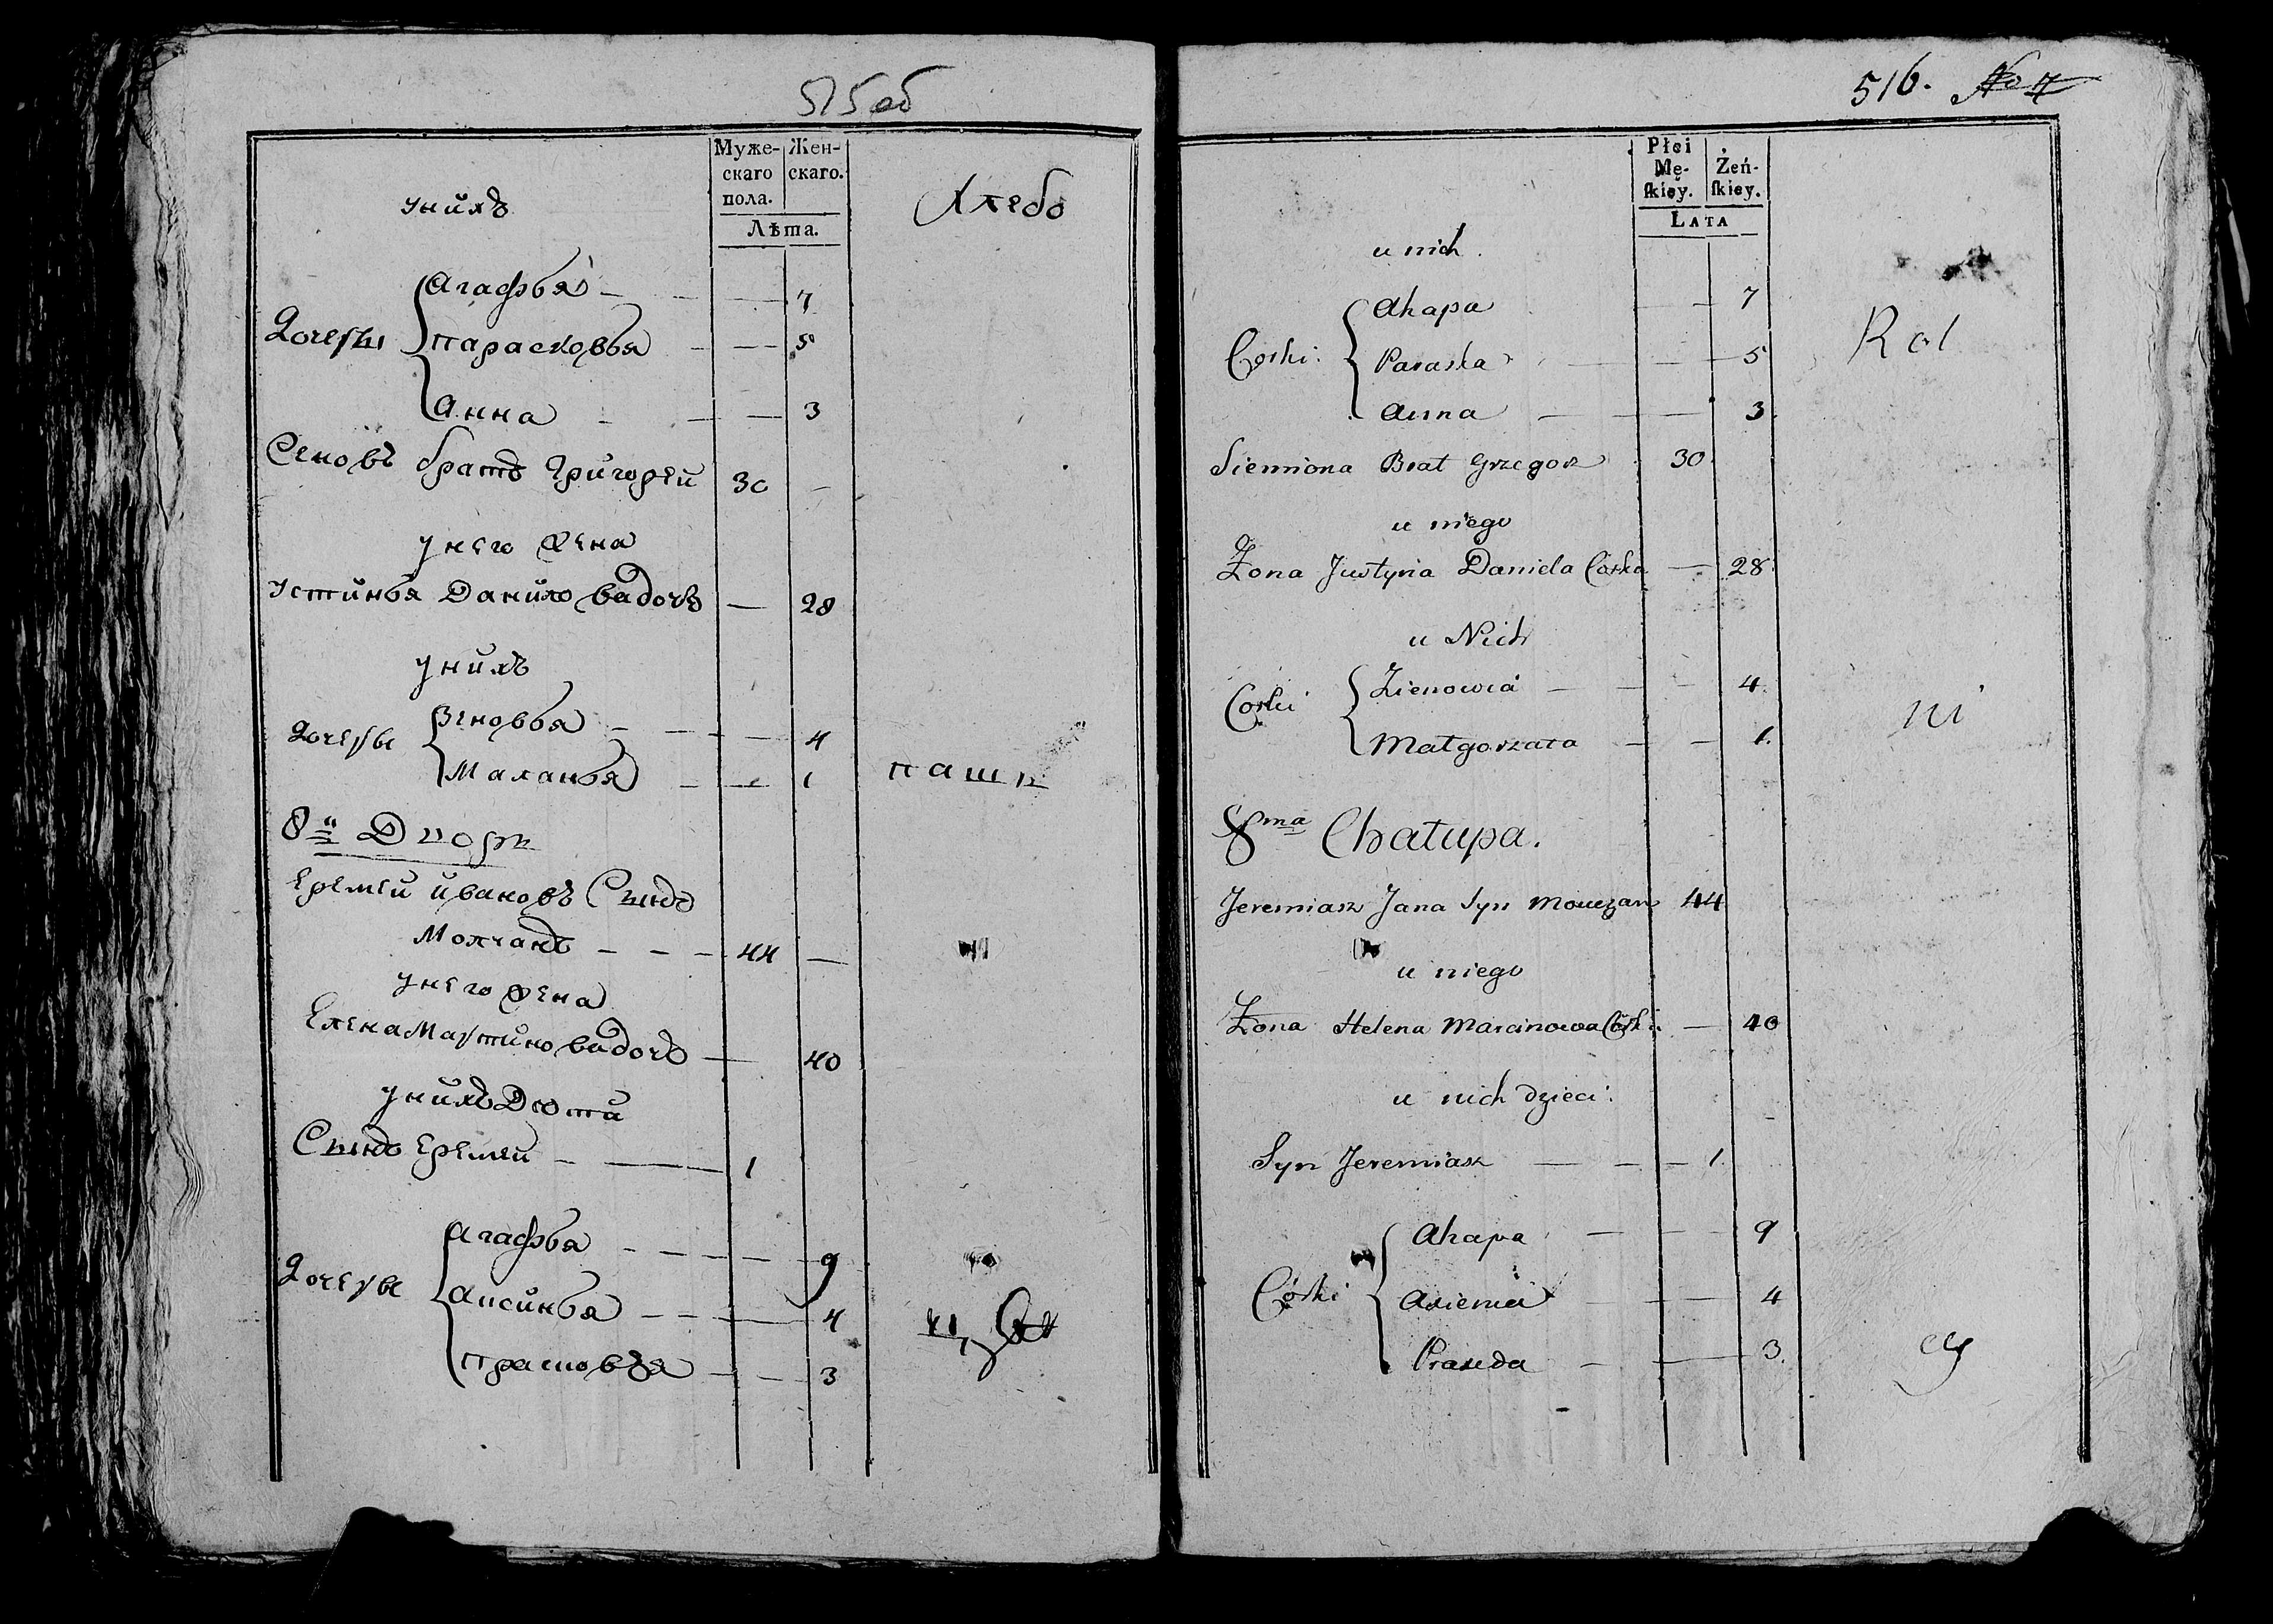 515об
Муже-
скаго
пола.
Жен-
скаго.
Лѣта.
унихъ
Хлебо
Агафья — 7
Дочеры
Парасковья — 5
Анна — 3
Сеновъ братъ Григорей 30 —
унего жена
Устинья Данило вадочь — 28
унихъ
Зеновья — 4
дочеры
Маланья — 1
паш
8й Дворъ
Еремей Ивановъ Сынъ
Молчанъ — 44 —
унего жена
Елена Мартино вадочь — 40
унихъ Дѣти
Сынъ Еремей — 1
Агафья — 9
дочеры
Аксинья — 4
Прасковья — 3
516. No 7
Płci
Mę-
ſkiey.
Żeń-
ſkiey.
LATA
u nich.
Ahapa — 7
Corki:
Paraska — 5
Rol
Anna — 3.
Siemiona Brat Grzegorz 30.
u niego
Żona Justyna Daniela Corka — 28.
u Nich
Zienowia — 4.
Corki
ni
Małgorzata — 1.
8ma Chałupa.
Jeremiasz Jana Syn Mouczan 44
u niego
Żona Helena Marcinowa Córka — 40
u nich dzieci:
Syn Jeremiasz — 1.
Ahapa — 9
Córki
Axienia — 4
Praxeda — 3.
cy